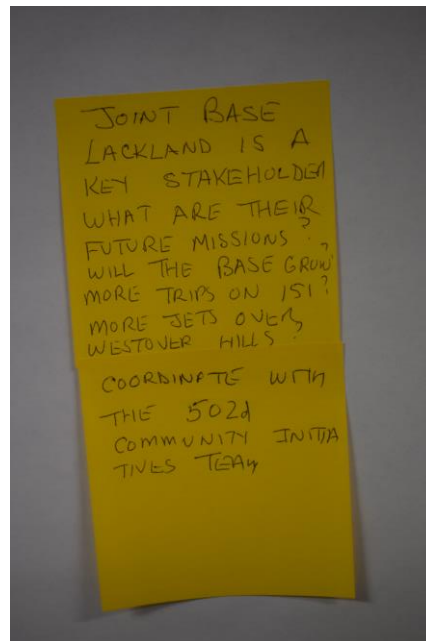 JOINT BASE
LACKLAND IS A
KEY STAKEHOLDER
WHAT ARE THEIR
FUTURE MISSIONS?
WILL THE BASE GROW?
MORE TRIPS ON 151?
MORE JETS OVER
WESTOVER HILLS?
COORDINATE WITH
THE 502d
COMMUNITY INITIA
TIVES TEAM